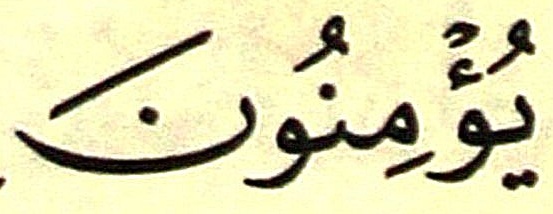 يُؤْمِنُونَ